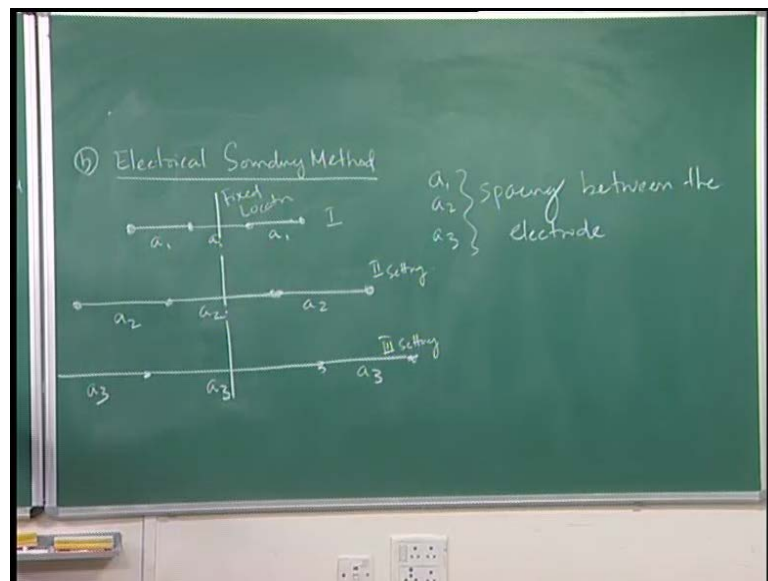 (b) Electrical Sounding Method
Fixed
Location
a1 a1 a1 I
II Setting
a2 a2 a2
III Setting
a3 a3 a3
a1
a2
a3
} spacing between the
electrode